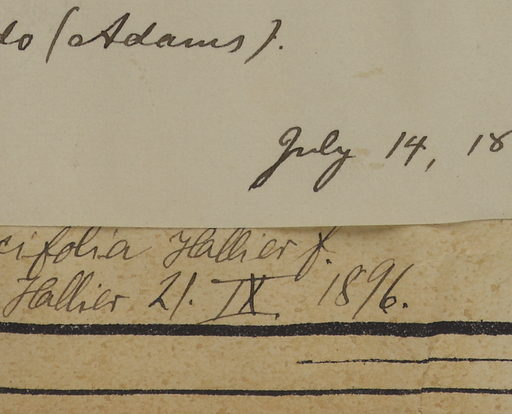 do (Adams).
July 14, 18
cifolia Hallier f.
Hallier 21. IX. 1896.